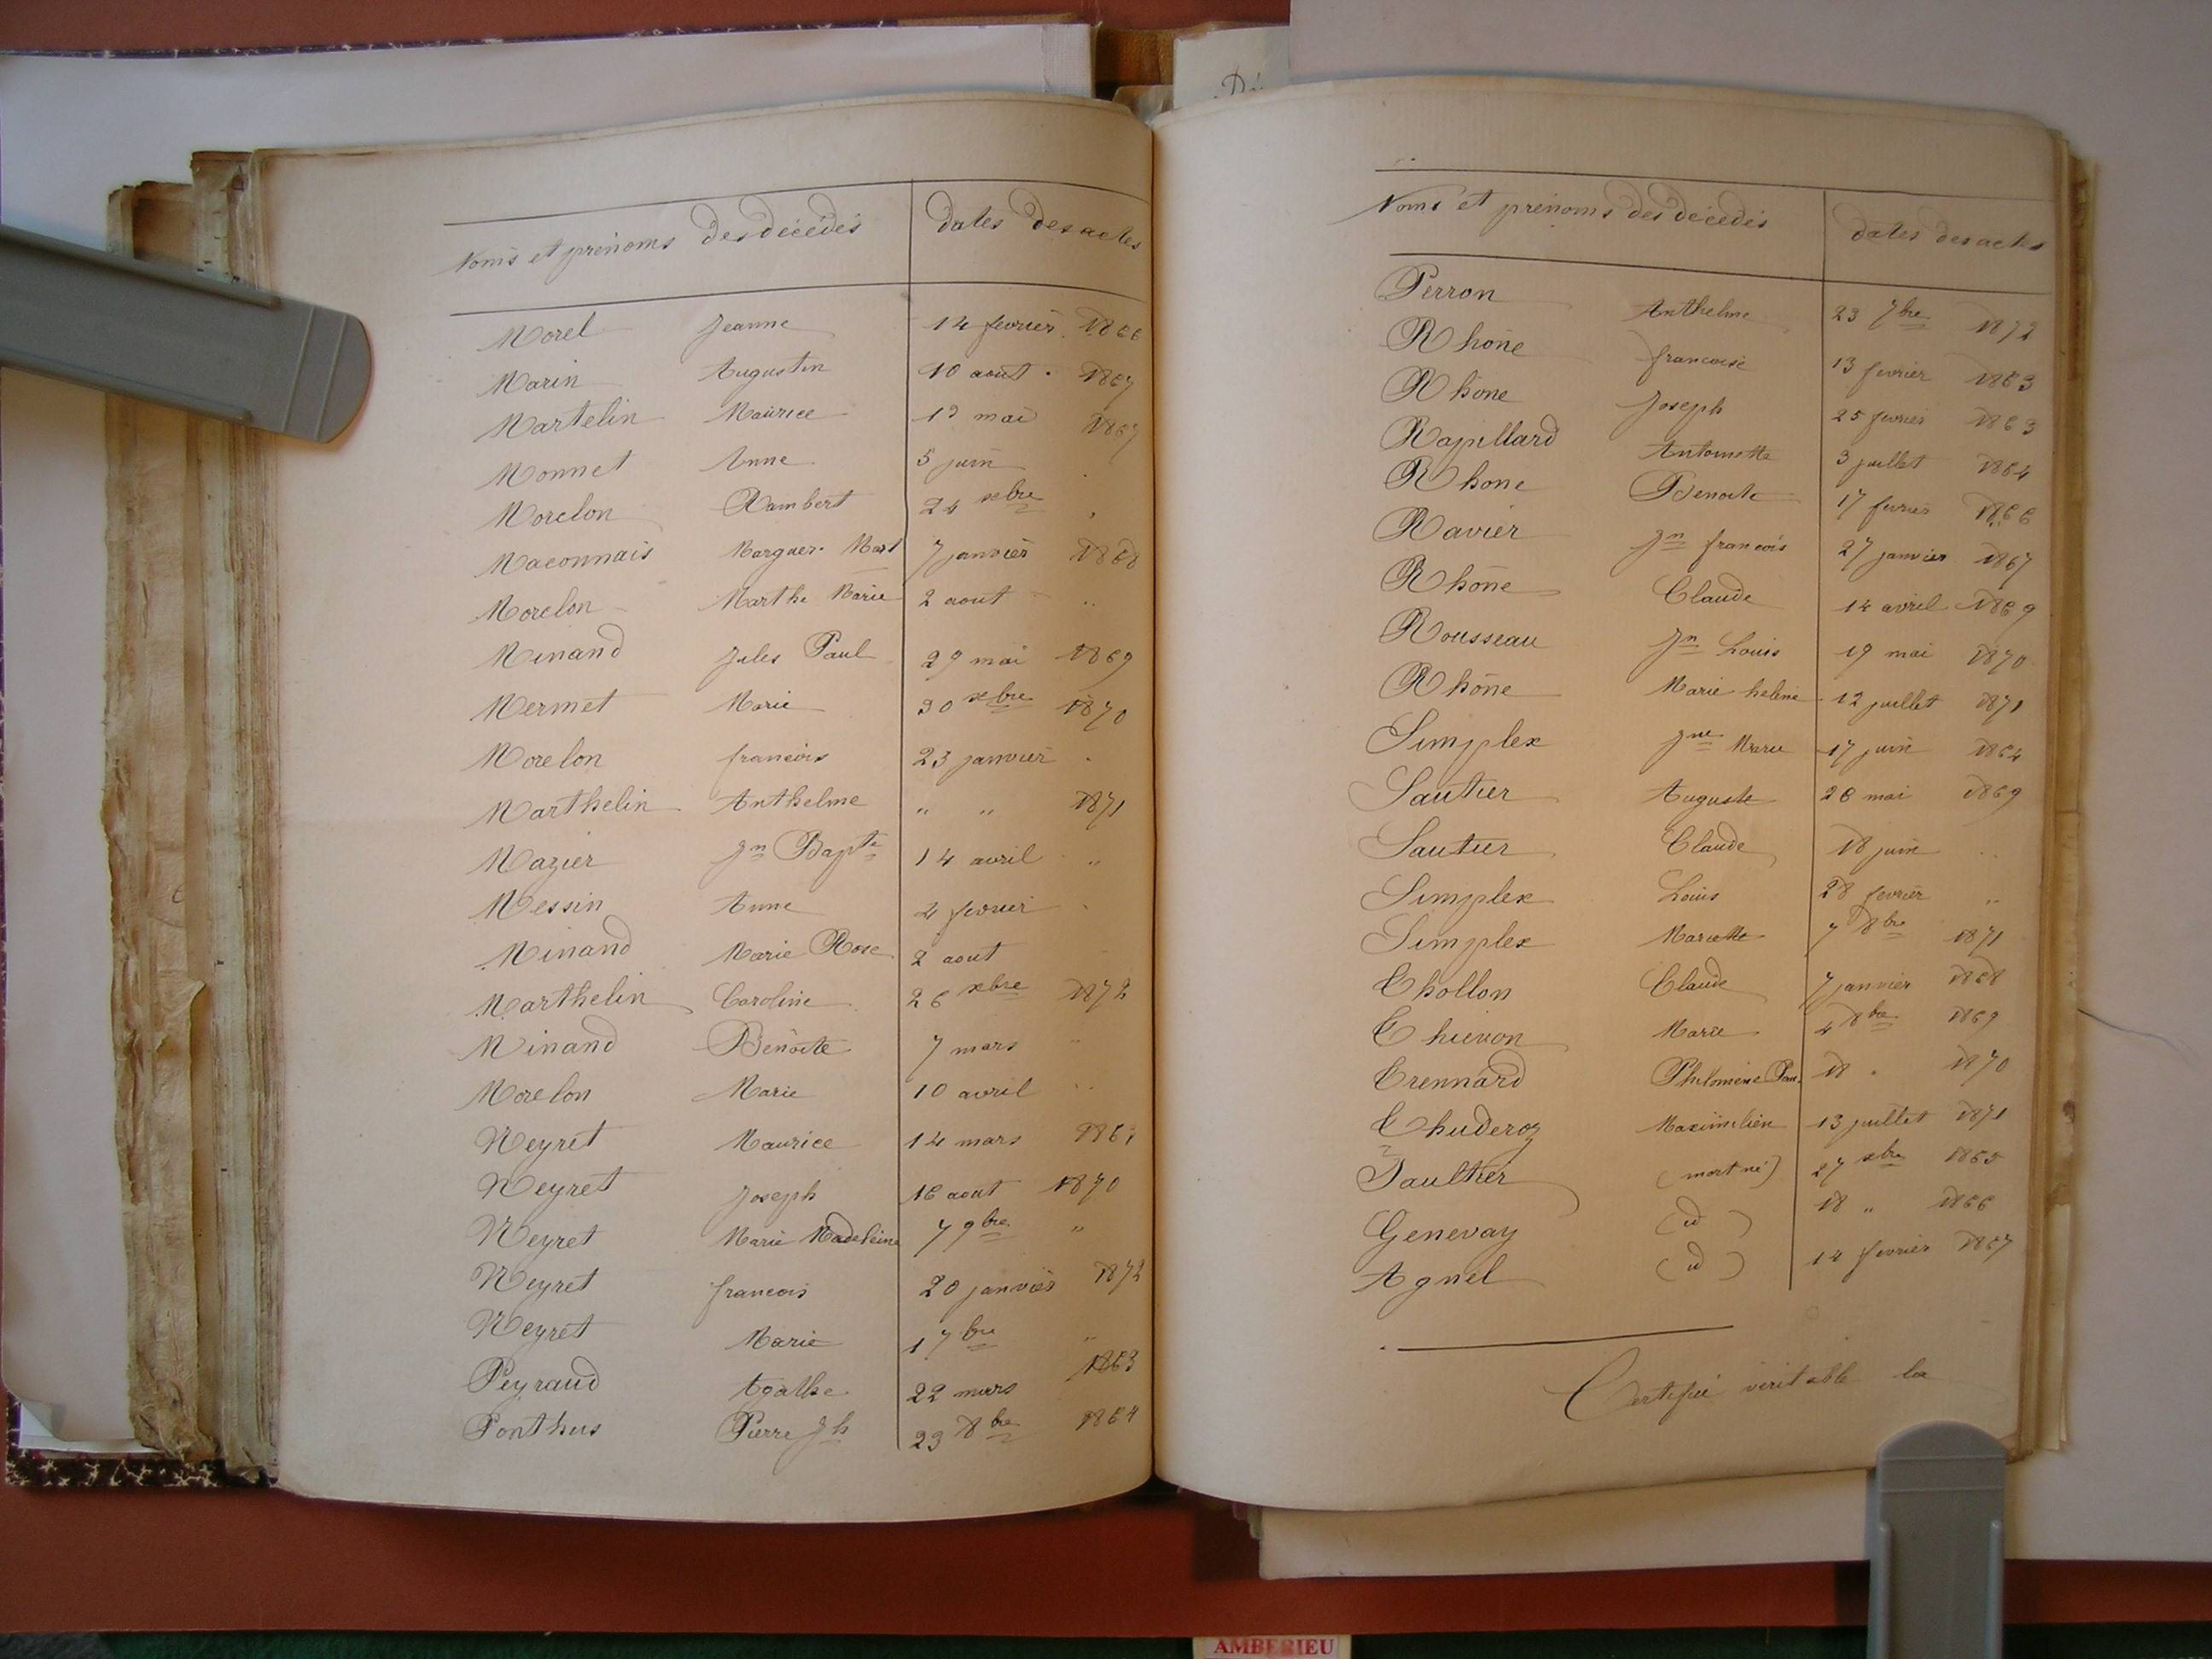 Noms et prénoms des décédés dates des actes
Morel Jeanne 14 fevrier 1866
Marin Augustin 10 aout 1867
Martelin Maurice 13 mai 1867
Monnet Anne 5 juin
Morelon Rambert 24 xbre
Maconnais Marguer. Mart 7 janvier 1868
Morelon Marthe Marie 2 aout "
Minand Jules Paul 29 mai 1869
Mermet Marie 30 xbre 1870
Morelon francois 23 janvier
Marthelin Anthelme " " 1871
Mazier Jn Bapte 14 avril "
Messin Anne 4 fevrier
Minand Marie Rose 2 aout
Marthelin Caroline 26 xbre 1872
Minand Benoite 7 mars "
Morelon Marie 10 avril "
Neyret Maurice 14 mars
Neyret Joseph 16 aout 1870
Neyret Marie Madeleine 7 9bre "
Neyret francois 20 janvier 1872
Neyret Marie 1 7bre "
Peyraud Agathe 22 mars 1863
Ponthus Pierre Jh 23 8bre 1864
Noms et prénoms des décédés dates des actes
Perron Anthelme 23 7bre 1872
Rhône francoise 13 fevrier 1863
Rhône Joseph 25 fevrier 1863
Rapillard Antoinette 3 juillet 1864
Rhone Benoite 17 fevrier 1866
Ravier Jn francois 27 janvier 1867
Rhône Claude 14 avril 1869
Rousseau Jn Louis 19 mai 1870
Rhône Marie helene 12 juillet 1871
Simplex Jne Marie 17 juin 1864
Sautier Auguste 26 mai 1869
Sautier Claude 18 juin "
Simplex Louis 28 fevrier "
Simplex Mariette 7 8bre 1871
Thollon Claude 7 janvier 1868
Thievon Marie 4 8bre 1869
Trennard Philomène Pau. 18 " 1870
Thuderoz Maximilien 13 juillet 1871
Gaulthier (mort né) 27 xbre 1865
Genevay (id) 18 " 1866
Agnel (id) 14 fevrier 1867
Certifié véritable la
AMBERIEU